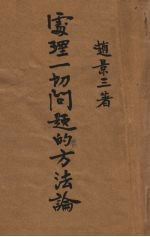 趙景三著
處理一切問題的方法論